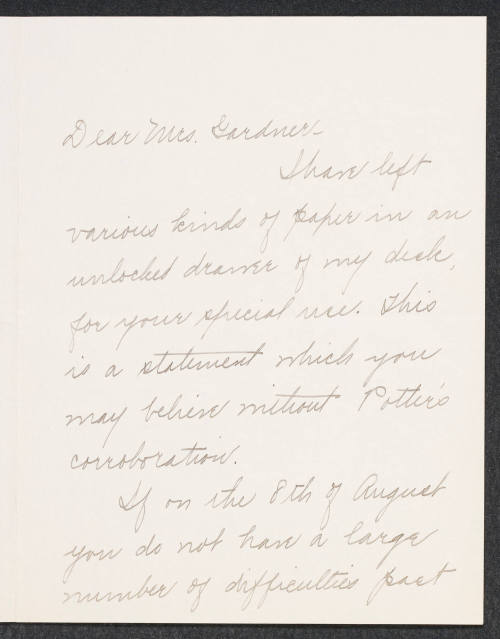 Dear Mrs. Gardner-
I have left
various kinds of paper in an
unlocked drawer of my desk,
for your special use. This
is a statement which you
may believe without Potter's
corroboration.
If on the 8th of August
you do not have a large
number of difficulties past